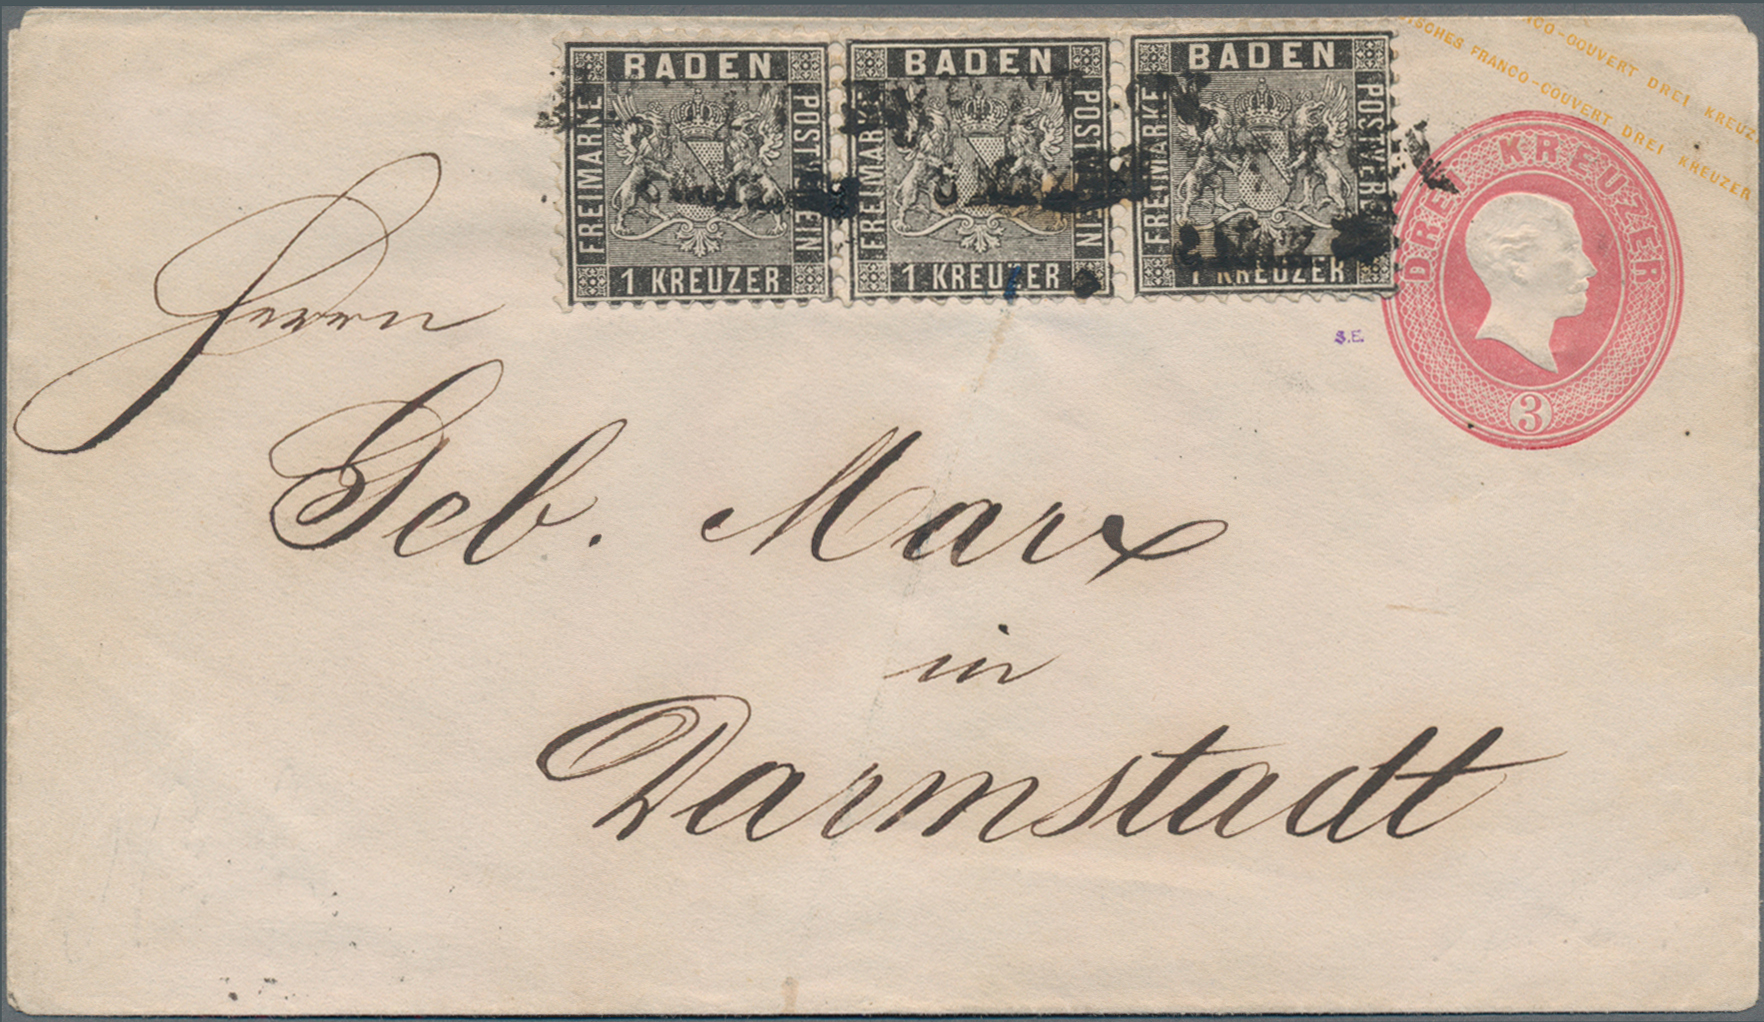 BADEN
FREIMARKE
POSTVEREIN
1 KREUZER
BADEN
FREIMARKE
POSTVEREIN
1 KREUZER
BADEN
FREIMARKE
POSTVEREIN
1 KREUZER
FRANCO-COUVERT DREI KREUZER
FRANCO-COUVERT DREI KREUZER
DREI KREUZER
3
S.E.
Herrn
Geb. Marx
in
Darmstadt